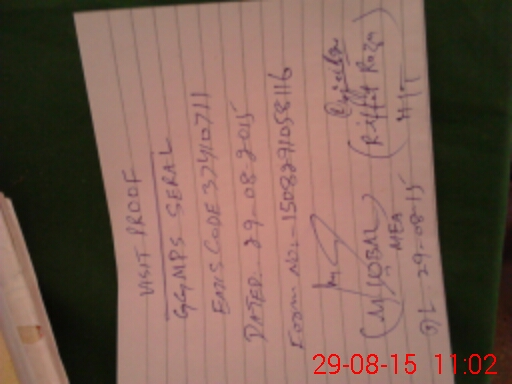 VISIT PROOF
GGMPS SERAL
EMIS CODE 37410711
DATED. 29-08-2015
Form No:- 1508291058116
(M. IQBAL)
MEA
29-08-15
(Riffat Raza)
29-08-15 11:02